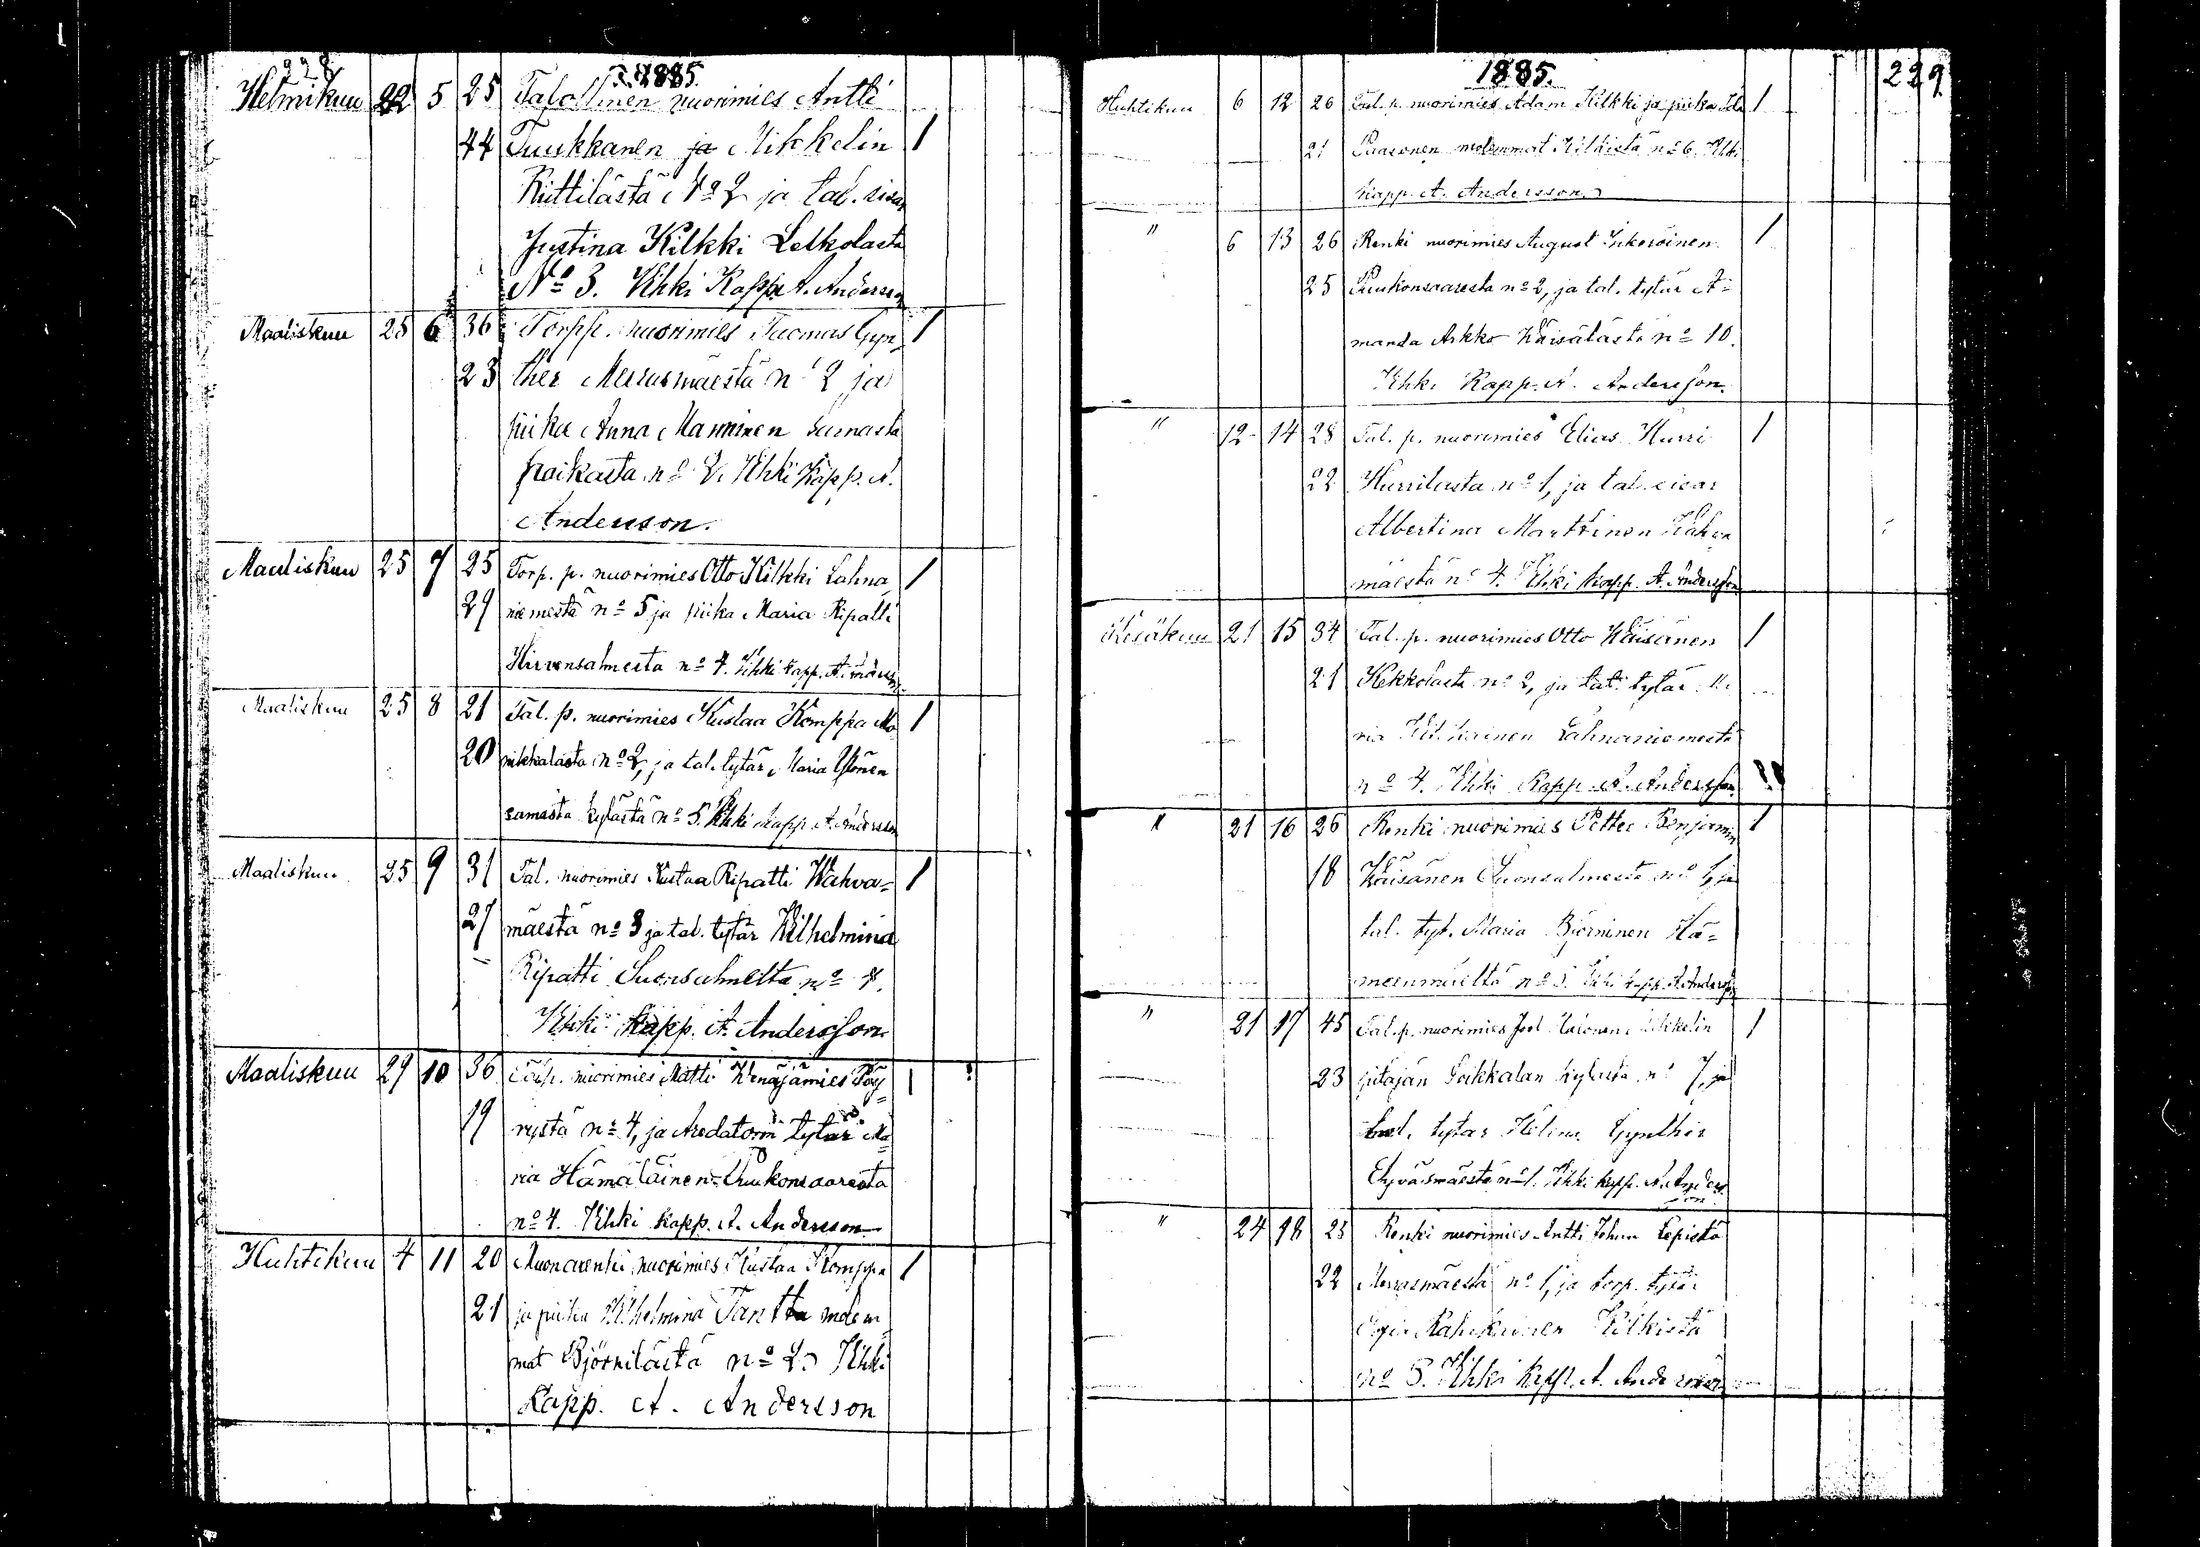 228
1885.
Helmikuu 22 5 25 Talollinen nuorimies Antti
44 Tuukkanen ja Mikkelin 1
Riittilästä No 2 ja tal. sisar
Justina Kilkki Letkolasta
No 3. Vihki Kapp. A. Andersson
Maaliskuu 25 6 36 Torpp. nuorimies Tuomas Gyn- 1
23 ther Merrasmäestä no 2 ja
piika Anna Manninen samasta
paikasta no 2. Vihki Kapp. A.
Andersson.
Maaliskuu 25 7 25 Torp. p. nuorimies Otto Kilkki Lahna 1
29 niemestä no 5 ja piika Maria Ripatti
Hirvensalmesta no 4. Vihki kapp. A.
Maaliskuu 25 8 21 Tal. p. nuorimies Kustaa Komppa Mo 1
20 nikkalasta no 2, ja tal. tytär Maria Ylönen
samasta kylästä no 5. Vihki kapp. A. Andersson
Maaliskuu 25 9 31 Tal. nuorimies Kustaa Ripatti Wahva- 1
27 mäestä no 3 ja tal. tytär Wilhelmina
Ripatti Suonsalmelta no 4.
Vihki Kapp. A. Andersson
Maaliskuu 29 10 36 Torp. nuorimies Matti Wenäjämies Pöy- 1
19 rystä no 4, ja Aredatorin tytär Ma
ria Hämäläinen Puukonsaaresta
no 4. Vihki kapp. A. Andersson
Huhtikuu 4 11 20 Muonarenki nuorimies Kustaa Komppa 1
21 ja piika Wilhelmina Tantta molem
mat Björnilästä no 2. Vihki
Kapp. A. Andersson
1885.
229
Huhtikuu 6 12 26 Tal. p. nuorimies Adam Kilkki ja piika Ida 1
21 Paasonen molemmat Kilkistä no 6. Vihki
kapp. A. Andersson
" 6 13 26 Renki nuorimies August Inkeroinen 1
25 Puukonsaaresta no 2, ja tal. tytär A-
manda Arkko Wäisälästä no 10.
Vihki Kapp. A. Andersson.
" 12 14 28 Tal. p. nuorimies Elias Hurri 1
22 Hurrilasta no 1, ja tal. sisar
Albertina Marttinen Wahva
mäestä no 4. Vihki kapp. A. Andersson
Kesäkuu 21 15 34 Tal. p. nuorimies Otto Wäisänen 1
21 Kekkolasta no 2, ja tal. tytär Ma
ria Lahnaniemestä
no 4. Vihki Kapp. A. Andersson
" 21 16 26 Renki nuorimies Petter Benjamin 1
18 Wäisänen Suonsalmesta no 1, ja
tal. tyt. Maria Björninen Hä-
meenmäeltä no 5. Vihki kapp. A. Andersson
" 21 17 45 Tal. p. nuorimies Joel Halonen Mikkelin 1
23 pitäjän Soikkalan kylästä no 7, ja
tal. tytär Helena Gynther
Elyväsmäestä no 1. Vihki kapp. A. Anders
son
" 24 18 25 Renki nuorimies Antti Johan Lepistö
22 Merrasmäestä no 1, ja torp. tytär
Rahikainen Kilkistä
no 5. Vihki kapp. A. Andersson